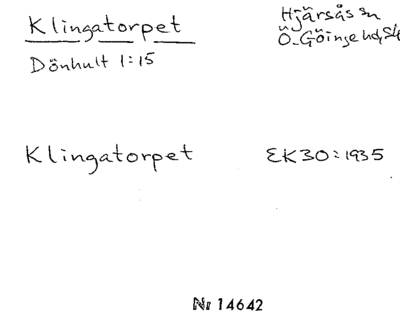 Klingatorpet
Hjärsås sn
Dönhult 1:15
Ö. Göinge hd, Sk
Klingatorpet
EK30:1935
Nr 14642